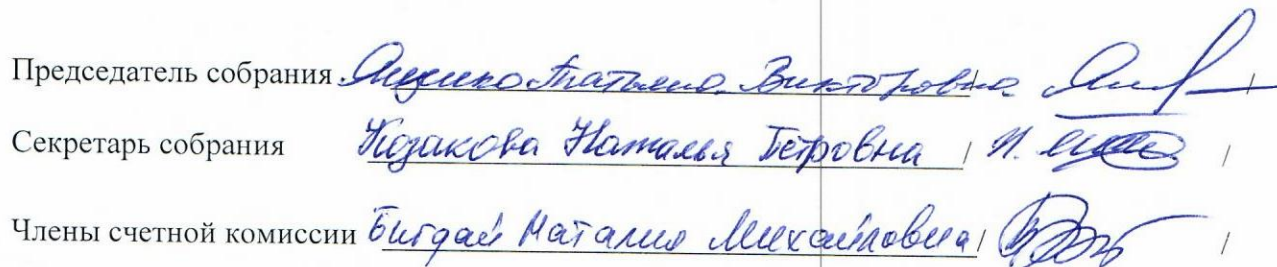 Председатель собрания Татьяна Викторовна /
Секретарь собрания Козакова Наталья Петровна / /
Члены счетной комиссии Бигдай Наталия Михайловна / /